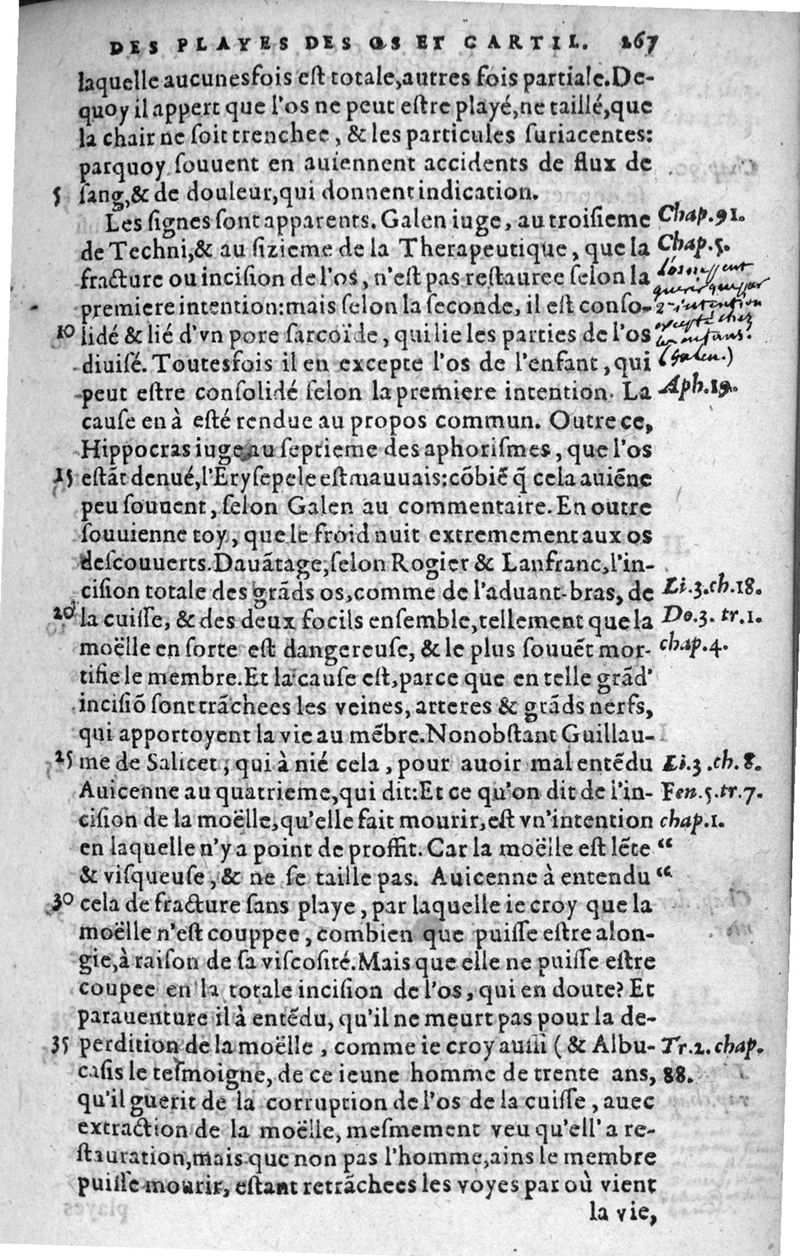 DES PLAYES DES OS ET CARTIL. 267
laquelle aucunesfois eſt totale,autres fois partiale.De-
quoy il appert que l'os ne peut eſtre playé,ne taillé,que
la chair ne ſoit trenchee, & les particules ſuriacentes:
parquoy ſouuent en auiennent accidents de flux de
5 ſang,& de douleur,qui donnent indication.
Les ſignes ſont apparents. Galen iuge, au troiſieme Chap.91.
de Techni,& au ſizieme de la Therapeutique, que la Chap.5.
fracture ou inciſion de l'os, n'eſt pas reſtauree ſelon la
premiere intention:mais ſelon la ſeconde, il eſt conſo- 2e intention
10 lidé & lié d'vn pore ſarcoïde, qui lie les parties de l'os excepté chez les enfans.
diuiſé. Toutesfois il en excepte l'os de l'enfant, qui (Galen.)
peut eſtre conſolidé ſelon la premiere intention. La Aph.19.
cauſe en à eſté rendue au propos commun. Outre ce,
Hippocras iuge au ſeptieme des aphoriſmes, que l'os
15 eſtãt denué,l'Eryſepele eſt mauuais:cõbiẽ q̃ cela auiẽne
peu ſouuent, ſelon Galen au commentaire. En outre
ſouuienne toy, que le froid nuit extremement aux os
deſcouuerts.Dauãtage,ſelon Rogier & Lanfranc,l'in-
ciſion totale des grãds os,comme de l'aduant-bras, de Li.3.ch.18.
20 la cuiſſe, & des deux focils enſemble,tellement que la Do.3. tr.1.
moëlle en ſorte eſt dangereuſe, & le plus ſouuẽt mor- chap.4.
tifie le membre.Et la cauſe eſt,parce que en telle grãd'
inciſiõ ſont trãchees les veines, arteres & grãds nerfs,
qui apportoyent la vie au mẽbre.Nonobſtant Guillau-
25 me de Salicet, qui à nié cela, pour auoir mal entẽdu Li.3.ch.8.
Auicenne au quatrieme,qui dit:Et ce qu'on dit de l'in- Fen.5.tr.7.
ciſion de la moëlle,qu'elle fait mourir,eſt vn'intention chap.1.
en laquelle n'y a point de proffit. Car la moëlle eſt lẽte “
& viſqueuſe, & ne ſe taille pas. Auicenne à entendu “
30 cela de fracture ſans playe, par laquelle ie croy que la
moëlle n'eſt couppee, combien que puiſſe eſtre alon-
gie,à raiſon de ſa viſcoſité.Mais que elle ne puiſſe eſtre
coupee en la totale inciſion de l'os, qui en doute? Et
parauenture il à entẽdu, qu'il ne meurt pas pour la de-
35 perdition de la moëlle, comme ie croy auſſi (& Albu- Tr.2. chap.
caſis le teſmoigne, de ce ieune homme de trente ans, 88.
qu'il guerit de la corruption de l'os de la cuiſſe, auec
extraction de la moëlle, meſmement veu qu'ell' a re-
ſtauration,mais que non pas l'homme,ains le membre
puiſſe mourir, eſtant retrãchees les voyes par où vient
la vie,